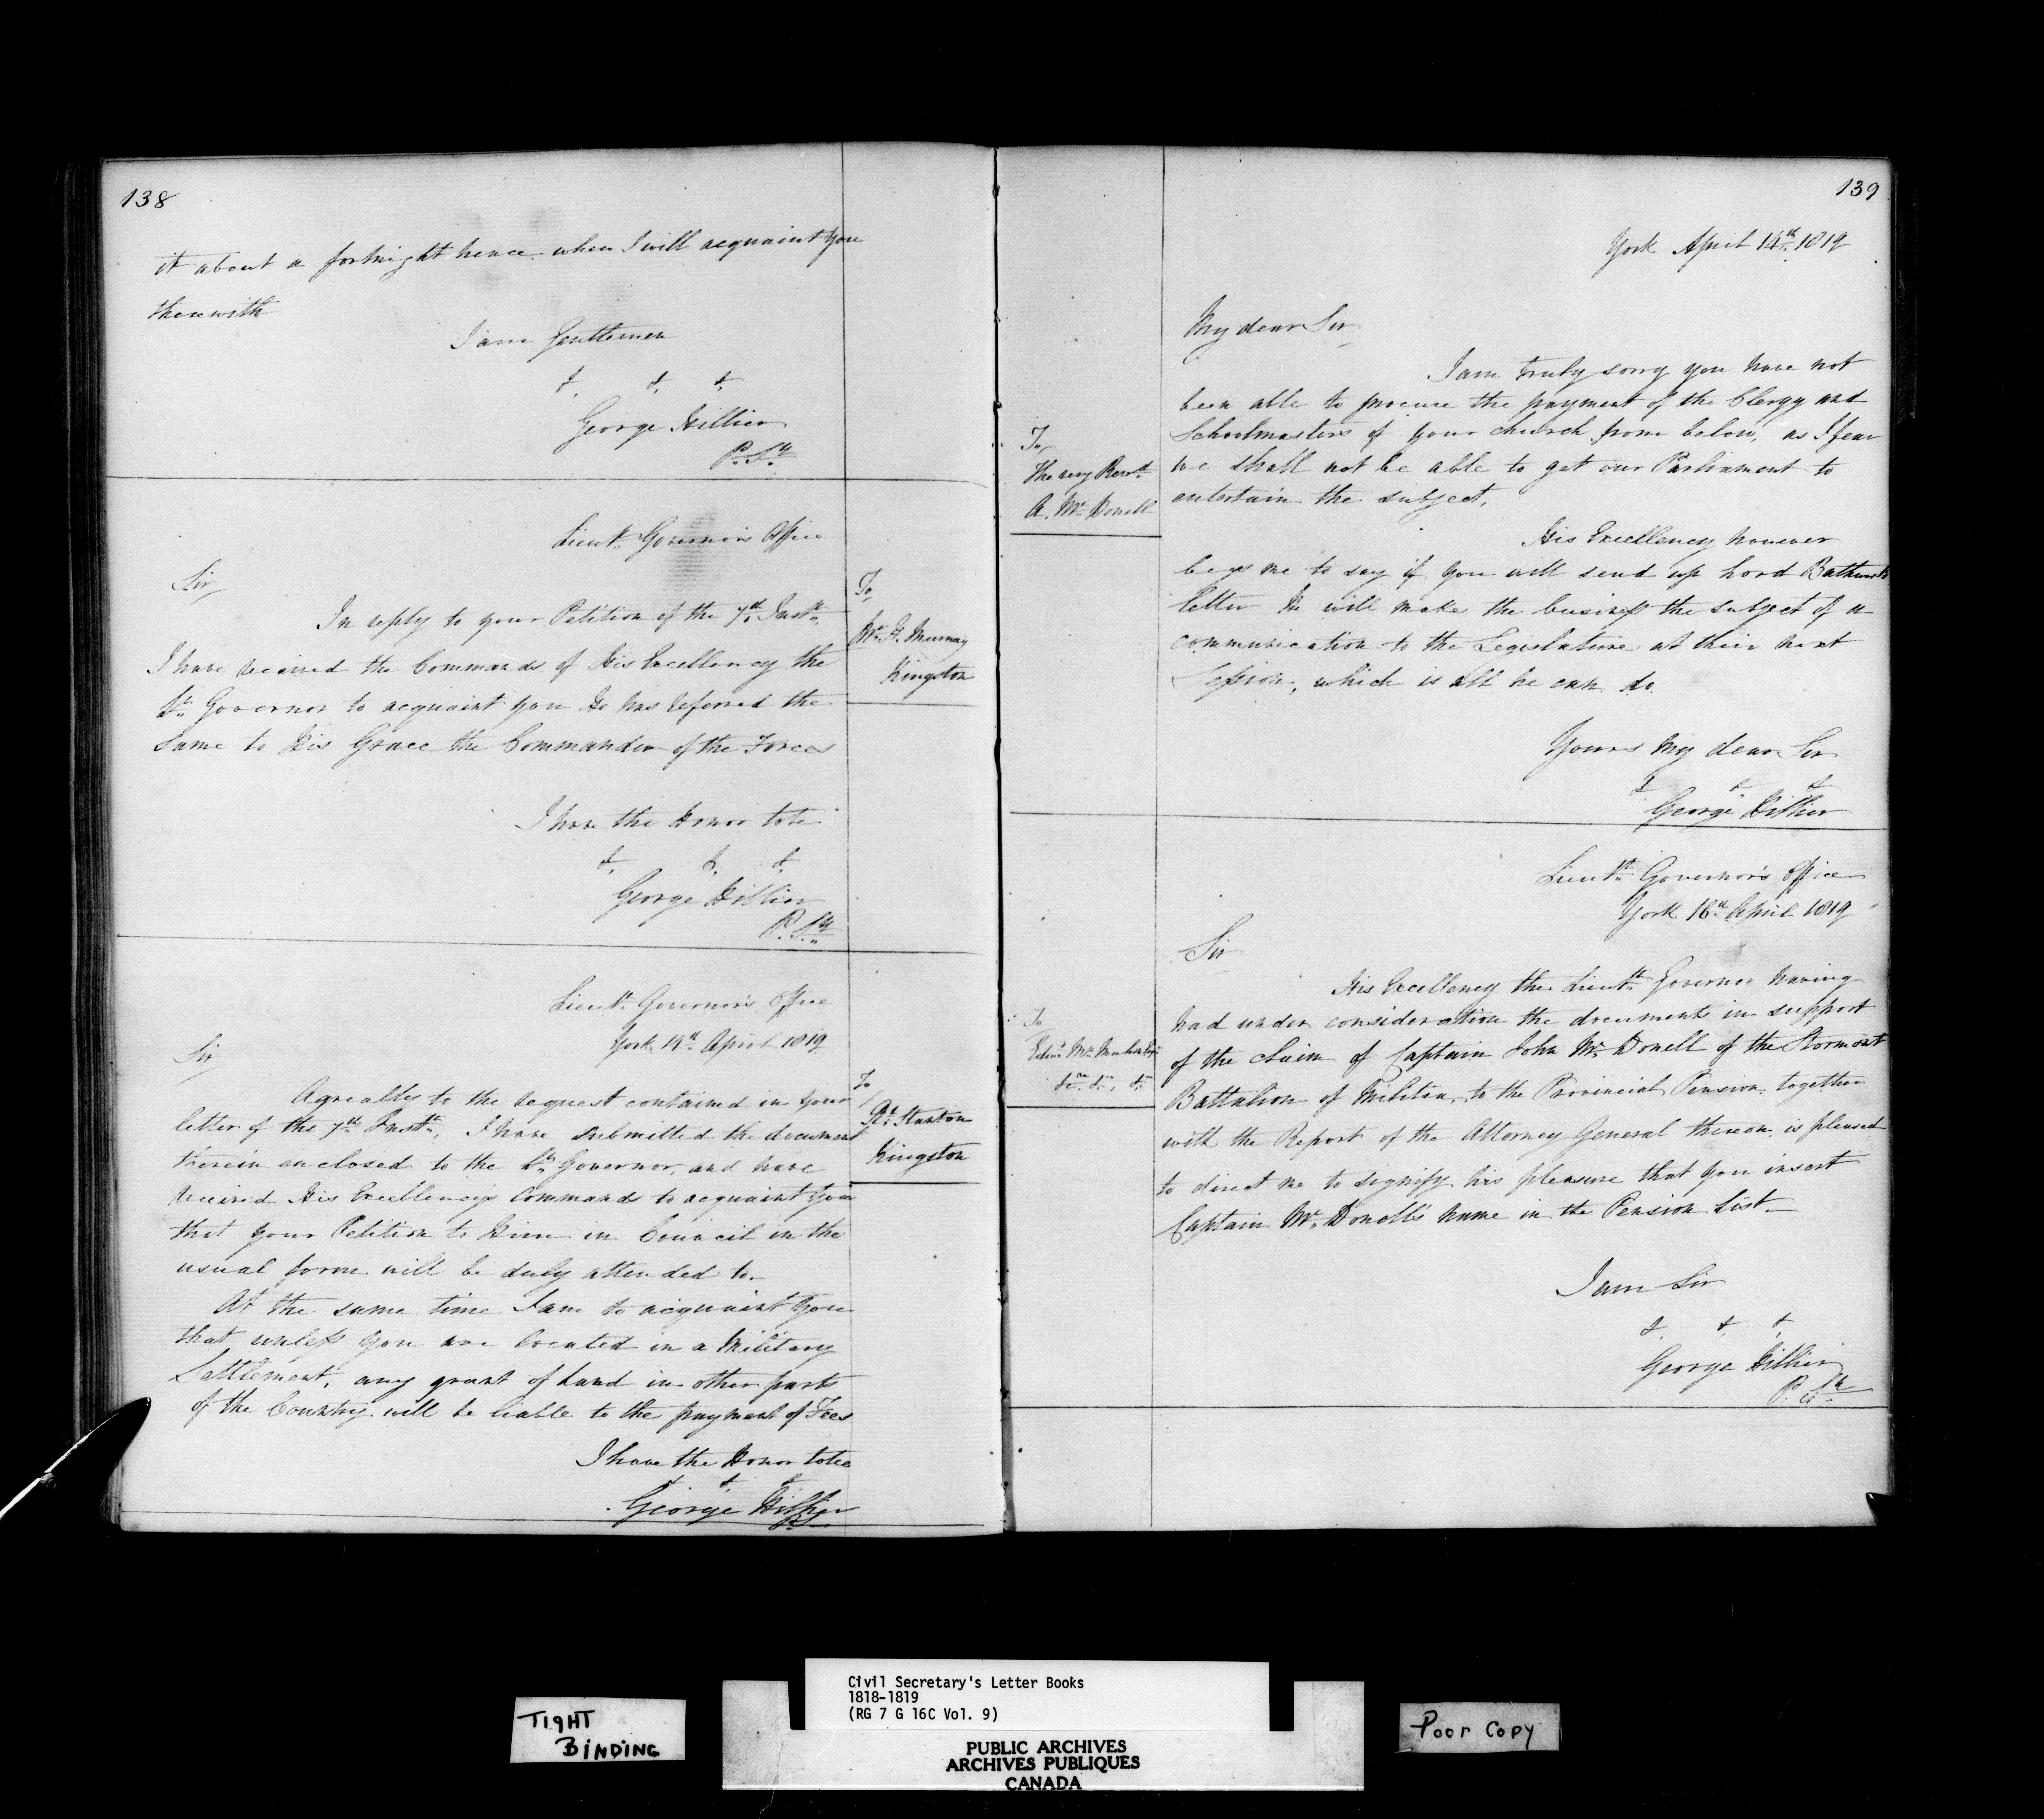 138
it about a fortnight hence when I will acquaint you
therewith
I am Gentlemen
&. &. &.
George Hillier
P. Sy.
Lieut. Governor's Office
To
Mr. H. Murray
Kingston
Sir
In reply to your Petition of the 7th. Inst.
I have received the Commands of His Excellency the
Lt. Governor to acquaint you He has referred the
same to His Grace the Commander of the Forces
I have the Honor to be
&. &. &.
George Hillier
P. Sy.
Lieut. Governor's Office
York 14th April 1819
To
Rt. Stanton
Kingston
Sir
Agreeably to the request contained in your
letter of the 7th. Inst., I have submitted the document
therein enclosed to the Lt. Governor, and have
received His Excellency's Commands to acquaint you
that your Petition to Him in Council in the
usual form will be duly attended to.
At the same time I am to acquaint you
that unless you are located in a Military
Settlement, any grant of Land in other parts
of the Country will be liable to the payment of Fees
I have the Honor to be
& & &
George Hillier
139
York April 14th. 1819
To
The very Revd.
A. Mc Donell
My dear Sir
I am truly sorry you have not
been able to procure the payment of the Clergy and
Schoolmasters of your church from below, as I fear
we shall not be able to get our Parliament to
entertain the subject.
His Excellency however
begs me to say if you will send up Lord Bathurst's
letter He will make the business the subject of a
communication to the Legislature at their next
Session, which is all he can do.
Yours my dear Sir
& & &
George Hillier
Lieut. Governor's Office
York 16th April 1819
To
Edwd. Mc Mahon Esqr.
&c. &. &.
Sir
His Excellency the Lieut. Governor having
had under consideration the documents in support
of the claim of Captain John Mc Donell of the Stormont
Battalion of Militia, to the Provincial Pension together
with the Report of the Attorney General thereon, is pleased
to direct me to signify his pleasure that you insert
Captain Mc. Donell's name in the Pension List.
I am Sir
&. &. &.
George Hillier
P. Sy.
TIGHT
BINDING
Civil Secretary's Letter Books
1818-1819
(RG 7 G 16C Vol. 9)
PUBLIC ARCHIVES
ARCHIVES PUBLIQUES
CANADA
Poor Copy